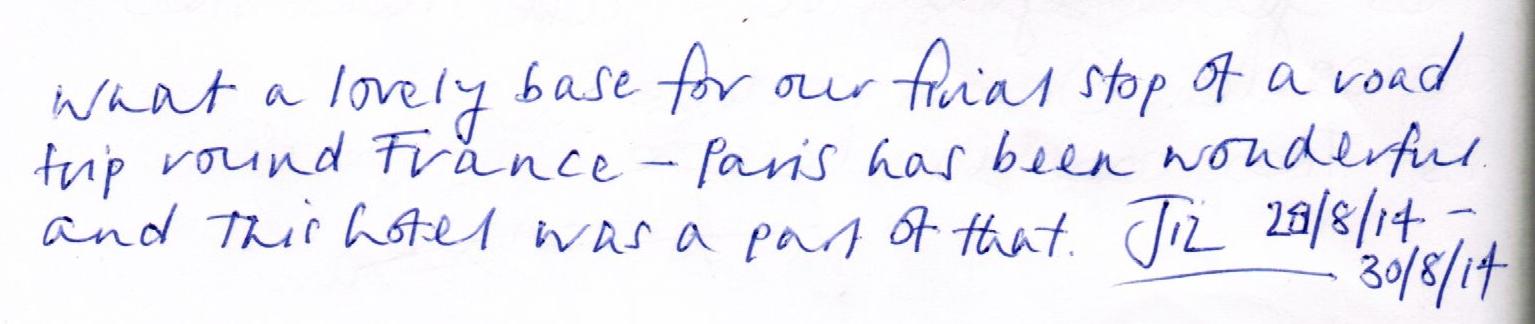 What a lovely base for our final stop of a road
trip round France – Paris has been wonderful
and this hotel was a part of that. Jiz /8/14 –
30/8/14